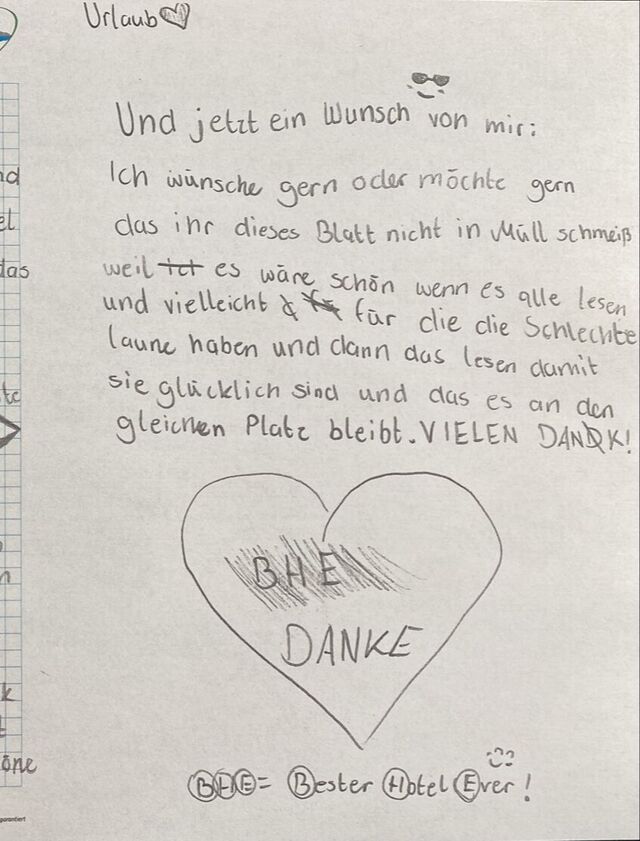 Urlaub
Und jetzt ein Wunsch von mir:
Ich wünsche gern oder möchte gern
das ihr dieses Blatt nicht in Müll schmeiß
weil es wäre schön wenn es alle lesen
und vielleicht für die die Schlechte
laune haben und dann das lesen damit
sie glücklich sind und das es an den
gleichen Platz bleibt. VIELEN DANK!
BHE
DANKE
BHE = Bester Hotel Ever!